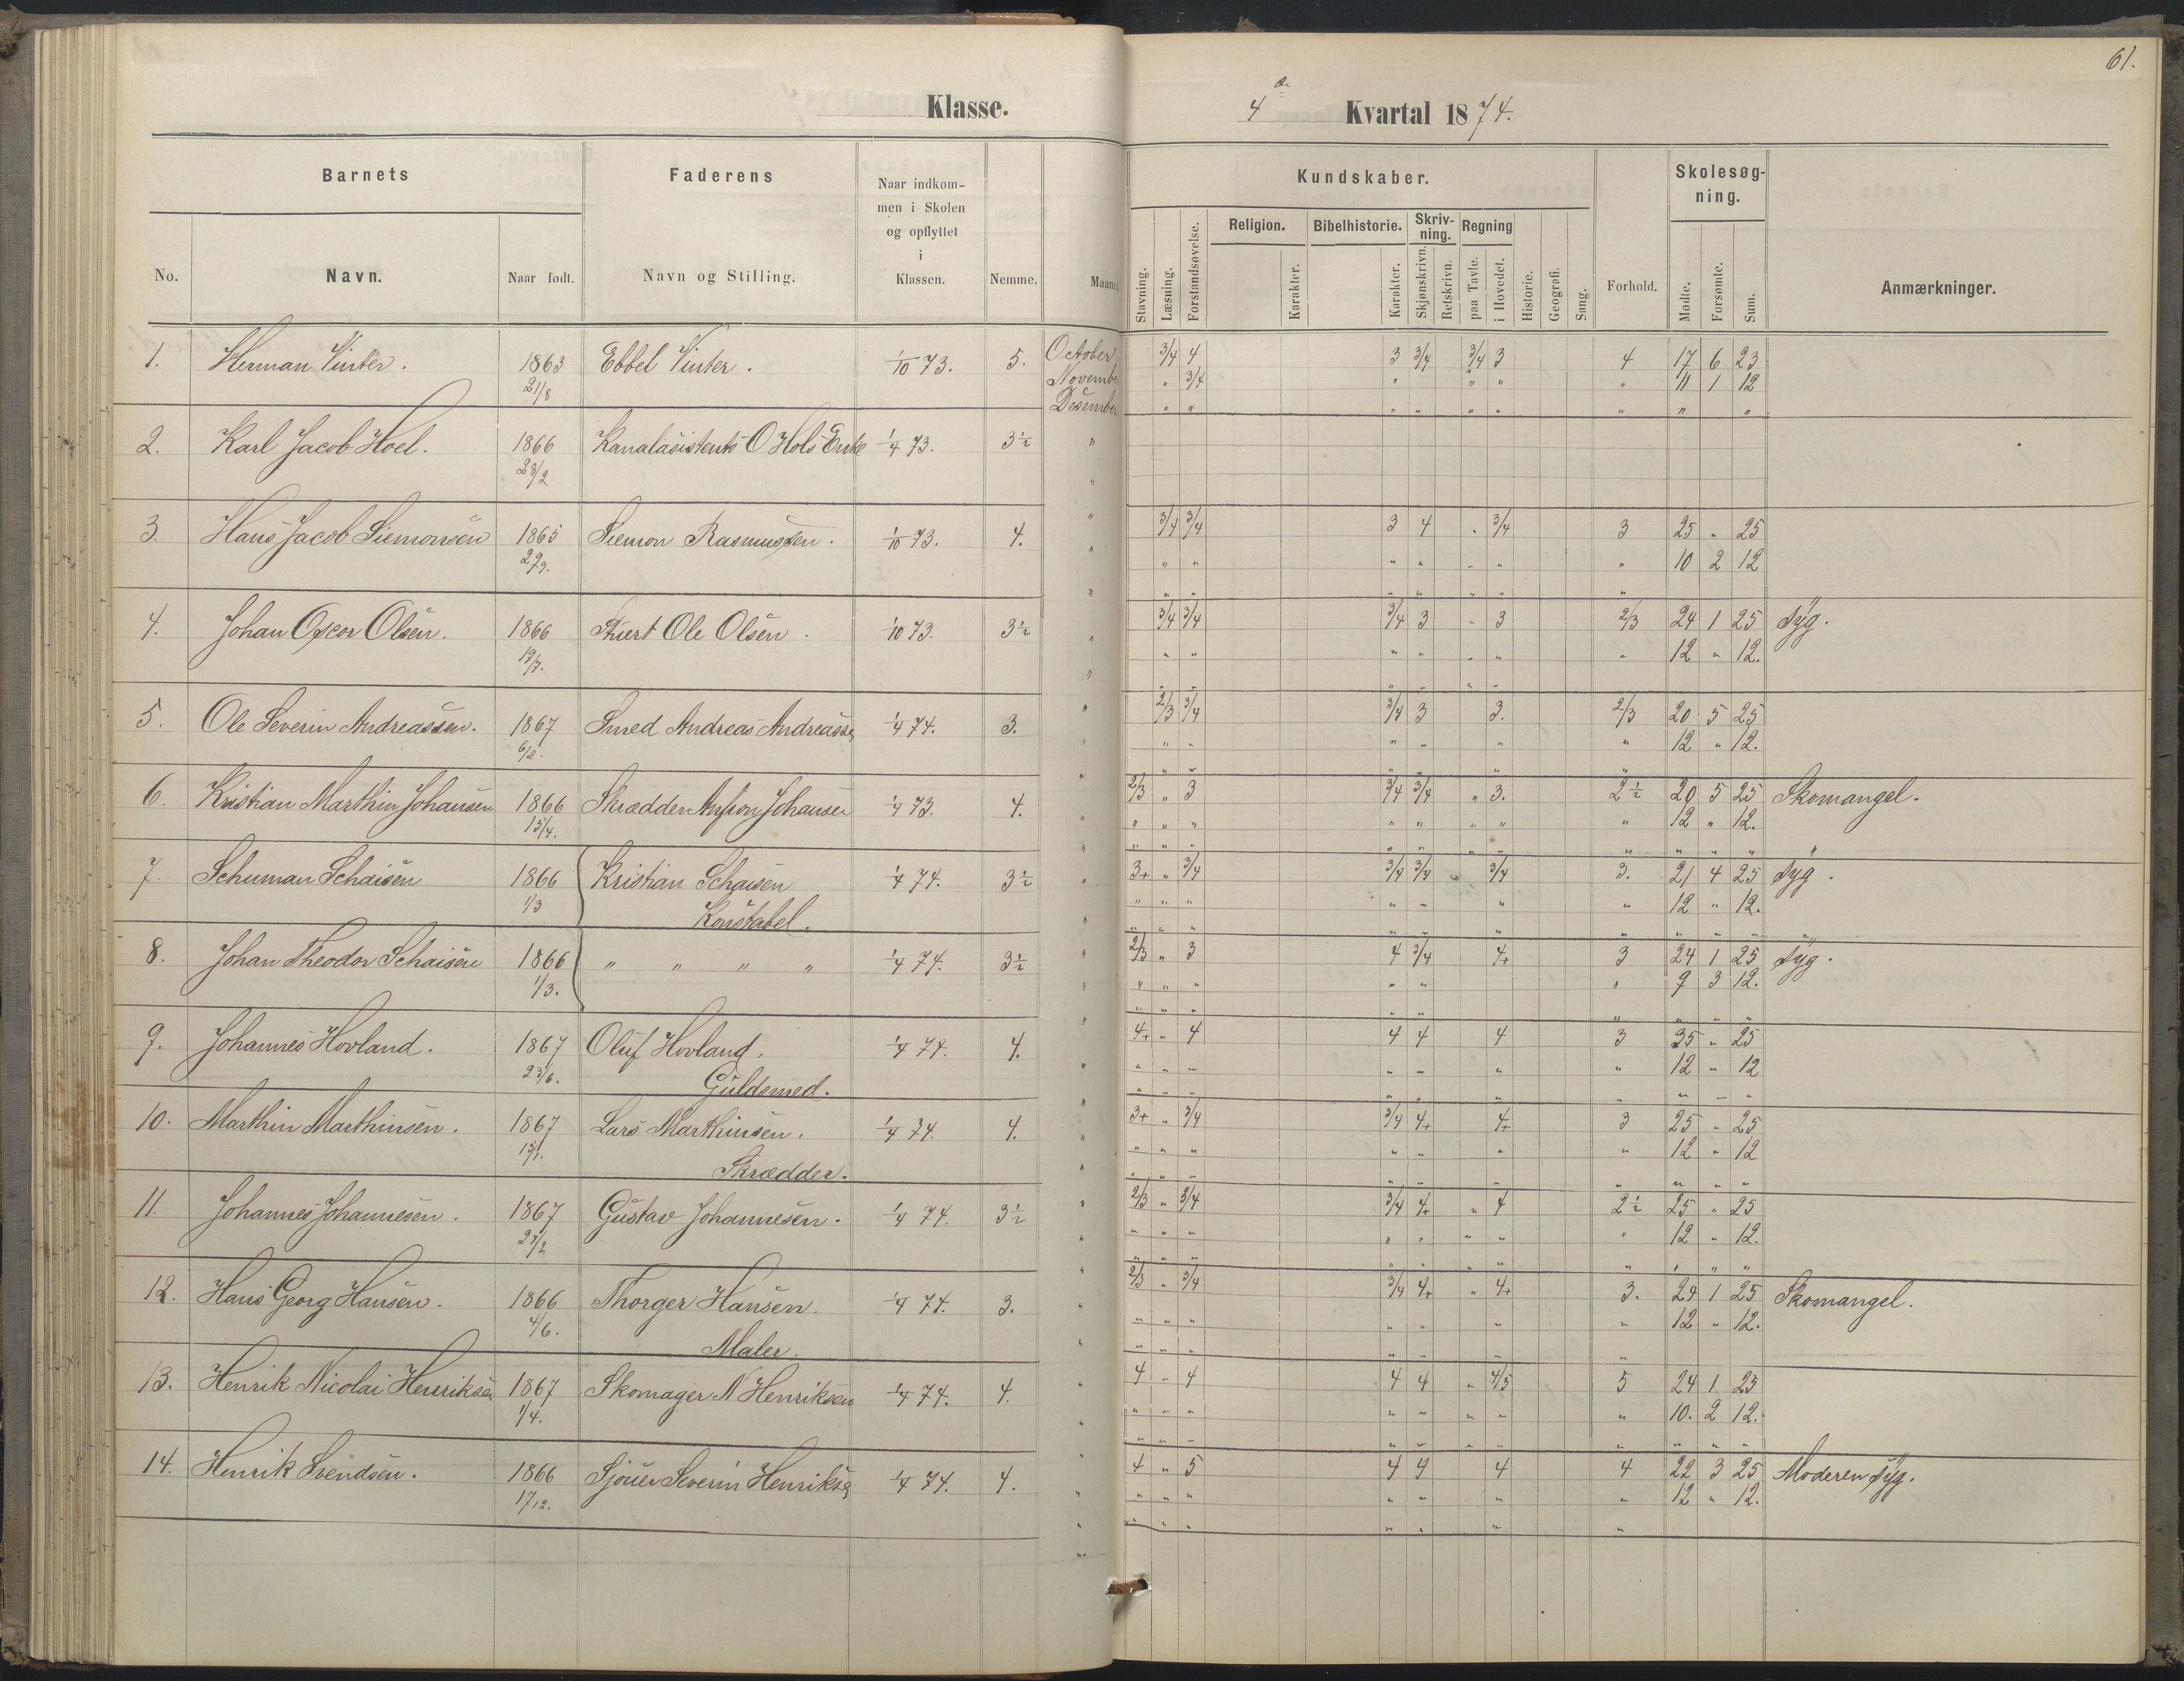 61.
Klasse.
4de Kvartal 1874.
Barnets
Faderens
Naar indkom-
men i Skolen
og opflyttet
i
Klassen.
No.
Navn.
Naar født.
Navn og Stilling.
Nemme.
Maaned
Kundskaber.
Skolesøg-
ning.
Stavning.
Læsning.
Forstandsøvelse.
Religion.
Karakter.
Bibelhistorie.
Karakter.
Skriv-
ning.
Skjønskrivn.
Retskrivn.
Regning
paa Tavle.
i Hovedet.
Historie.
Geografi.
Sang.
Forhold.
Mødte.
Forsømte.
Sum.
Anmærkninger.
1. Herman Vinter. 1863 Ebbel Vinter. 1/10 73. 5. October 3/4 4 3 3/4 3/4 3 4 17 6 23
21/8 November " 3/4 " " " " 11 1 12
Desember " " " " " " " " "
2. Karl Jacob Hoel. 1866 Kanalasistents O Hols Enke 1/4 73. 3½ "
28/2 "
3. Hans Jacob Siemonsen 1865 Siemon Rasmussen. 1/10 73. 4. " 3/4 3/4 3 4 " 3/4 3 25 " 25
" " " " " " " 10 2 12
" " " " " " "
4. Johan Oscar Olsen. 1866 Ole Olsen. 1/10 73. 3½ " 3/4 3/4 3/4 3 " 3 2/3 24 1 25 Syg.
" " " " " " " 12 " 12.
" " " " " "
5. Ole Severin Andreassen. 1867 Smed Andreas Andreasse 1/4 74. 3. " 2/3 3/4 3/4 3 3. 2/3 20 5 25
6/12. " " " " " " 12 " 12.
" " " " " "
6. Kristian Marthin Johansen 1866 Skrædder Johansen 1/4 73. 4. 2/3 " 3 3/4 3/4 " 3. 2½ 20 5 25 Skomangel.
15/4. " " " " " " " " 12 " 12.
" " " " " " " " " " " "
7. Schuman Schaisen 1866 Kristian Schaisen 1/4 74. 3½ " 3+ " 3/4 3/4 3/4 3/4 3. 21 4 25 Syg.
1/3 Konstabel. " " " " " " " 12 " 12.
" " " " " " " " " " "
8. Johan Theodor Schaisen 1866 " " " " 1/4 74. 3½ 2/3 " 3 4 3/4 4+ 3 24 1 25 Syg.
1/3. " " " " " " 9 3 12.
" " " " " " " " "
9. Johannes Hovland. 1867 Oluf Hovland. 1/4 74. 4. 4+ " 4 4 4 4 3 25 " 25
23/6. Guldsmed. " " " " " " " 12 " 12
" " " " " " " " " "
10. Marthin Marthinsen. 1867 Lars Marthinsen. 1/4 74. 4. 3+ " 3/4 3/4 4+ 4+ 3 25 " 25
Skrædder. " " " " " " " 12 " 12
" " " " " " " " " "
11. Johannes Johannesen. 1867 Gustav Johannesen. 1/4 74. 3½ 2/3 " 3/4 3/4 4+ " 4 2½ 25 " 25
" " " " " " " " 12 " 12.
" " " " " " " " " " "
12. Hans Georg Hansen. 1866 Thorger Hansen. 1/4 74. 3. 2/3 " 3/4 3/4 4+ " 4+ 3. 24 1 25 Skomangel.
4/6. Maler. " " " " " " " 12 " 12.
" " " " " " "
13. Henrik Nicolai Henriksen 1867 Skomager N Henriksen 1/4 74. 4. 4 " 4 4 4 " 4/5 5 24 1 25
1/4. " " " " " " " " 10. 2 12.
" " " " " " " " " " "
14. Henrik Svendsen. 1866 Sjöuer Severin Henrikse 1/4 74. 4. 4 " 5 4 4 4 4 22 3 25 Moderen syg.
17/12. " " " " " " " 12 " 12.
" " " " " " "